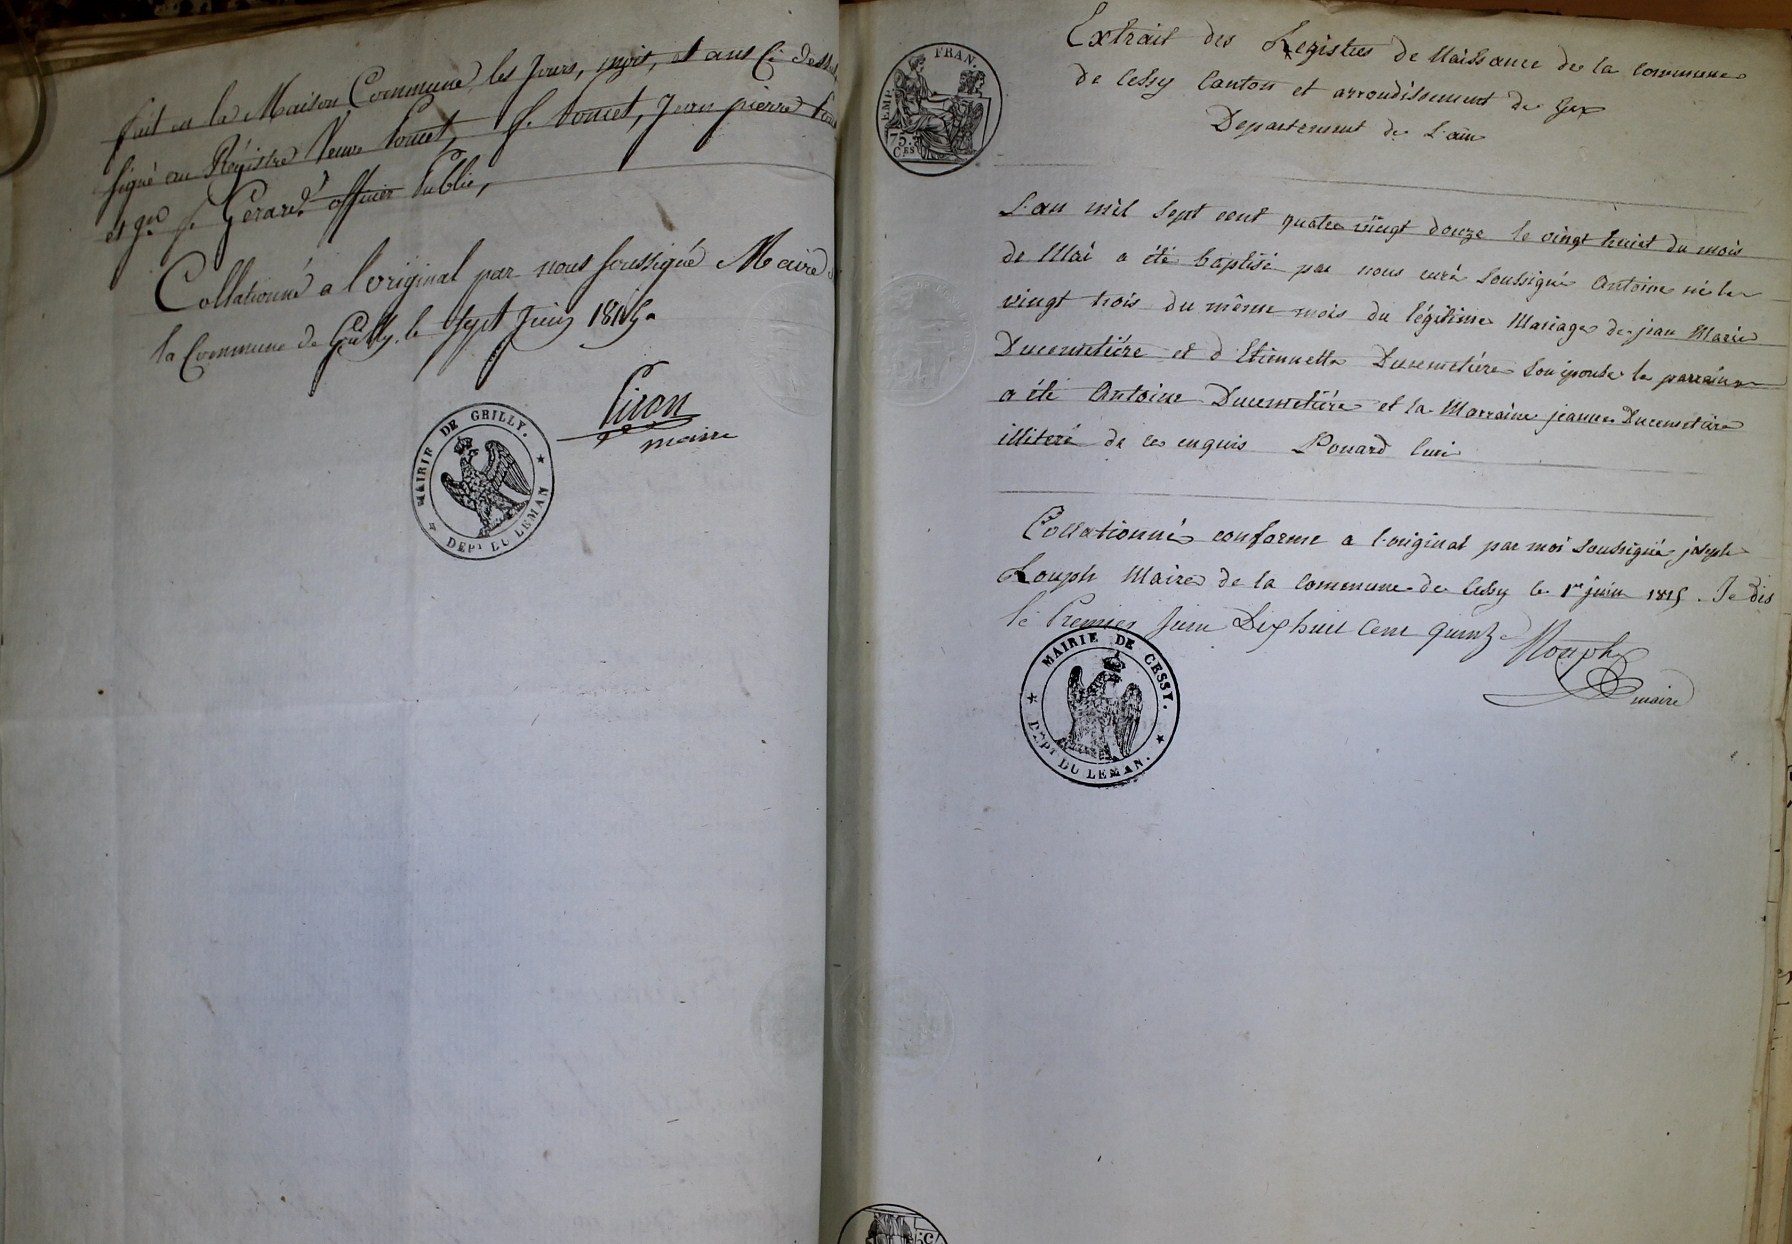 fait en la Maison Commune, les Jours, mois, et ans Ci dessus
signé au Régistre Veuve Poncet, f. Poncet, Jean pierre
et gd f. Gerard officier Public,
Collationné a l'original par nous soussigné Maire
la Commune de Grilly, le sept Juin 1815.
Piron
maire
MAIRIE DE GRILLY.
DEPT DU LEMAN
EMP. FRAN.
75.
CES
Extrait des Registres de Naissance de la Commune
de Cessy Canton et arrondissement de Gex
Departement de L'ain
L'an mil sept cent quatre vingt douze le vingt huict du mois
de Mai a été baptisé par nous curé soussigné Antoine né le
vingt trois du même mois du légitime Mariage de jean Marie
Ducemetiére et d'Etiennette Ducemetiére son épouse le parrain
a été Antoine Ducemetiére et la Marraine jeanne Ducemetiére
illiteré de ce enquis Pouard curé
Collationné conforme a l'original par moi soussigné joseph
Rouph Maire de la Commune de Cessy le 1er juin 1815. Je dis
le Premier Juin Dix huit cent quinze
Rouph
maire
MAIRIE DE CESSY.
DEPT DU LEMAN.